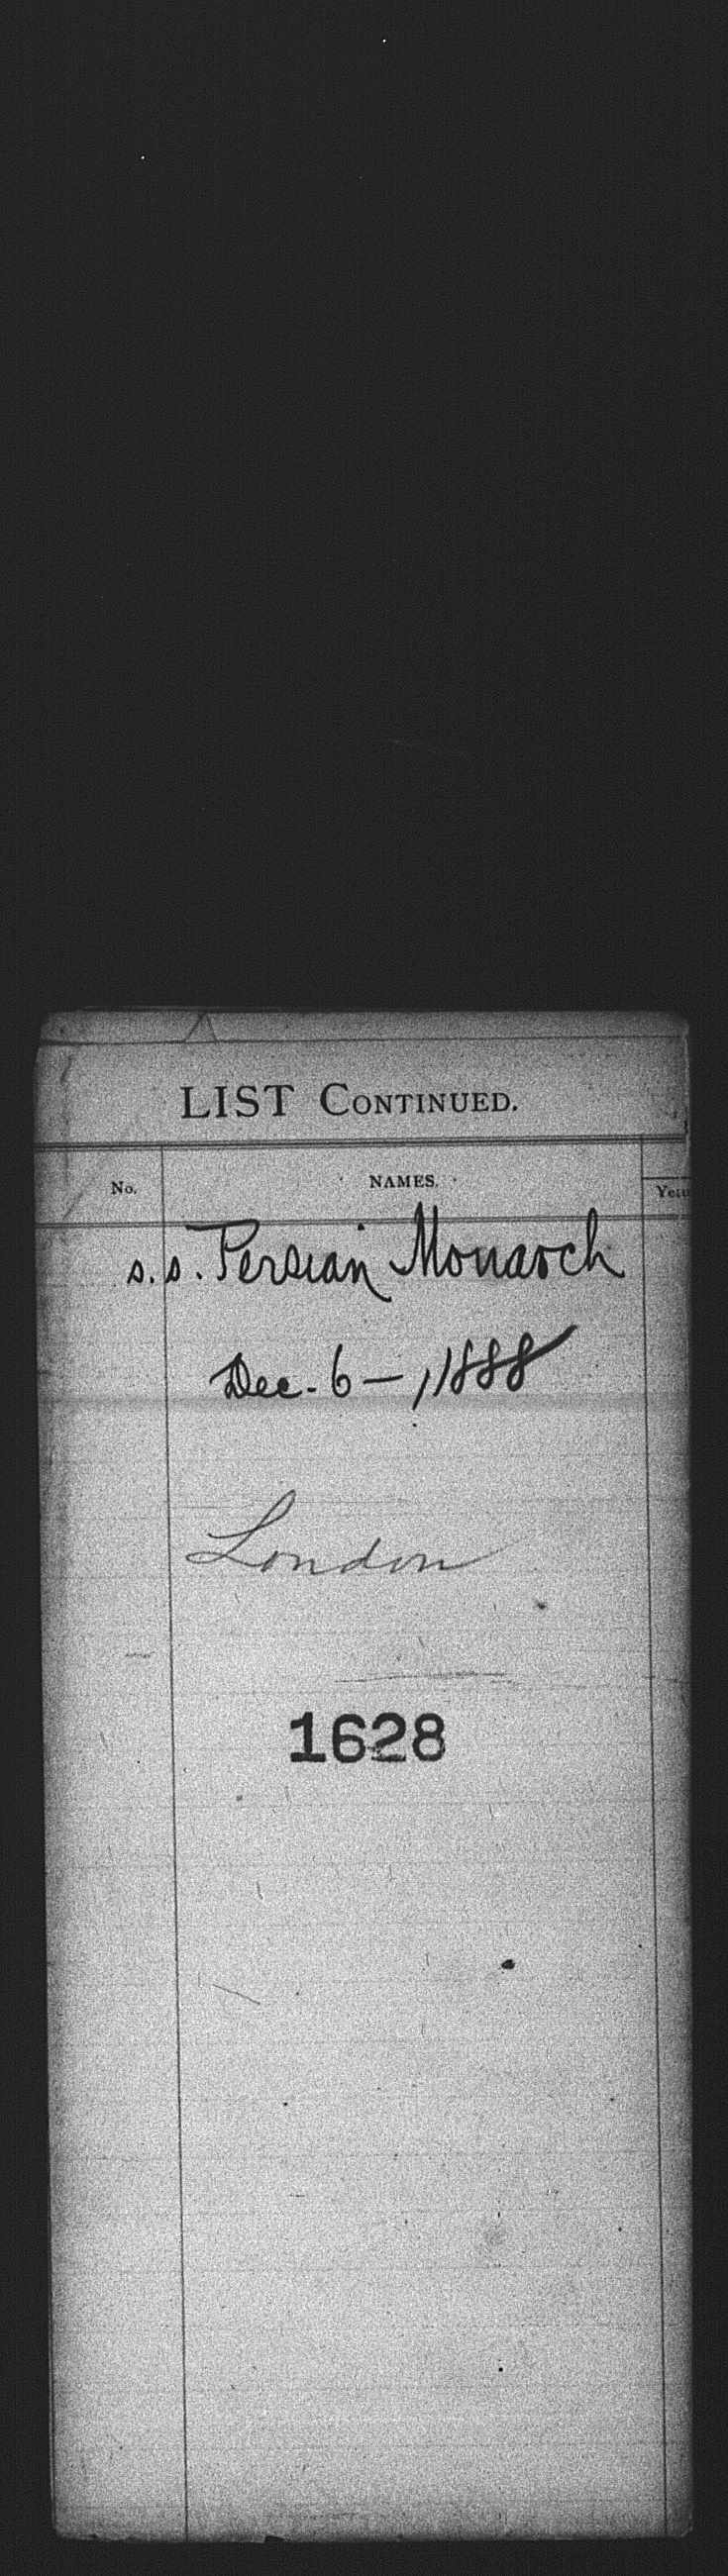 LIST CONTINUED.
No. NAMES.
s.s. Persian Monarch
Dec. 6 — 1888
London
1628